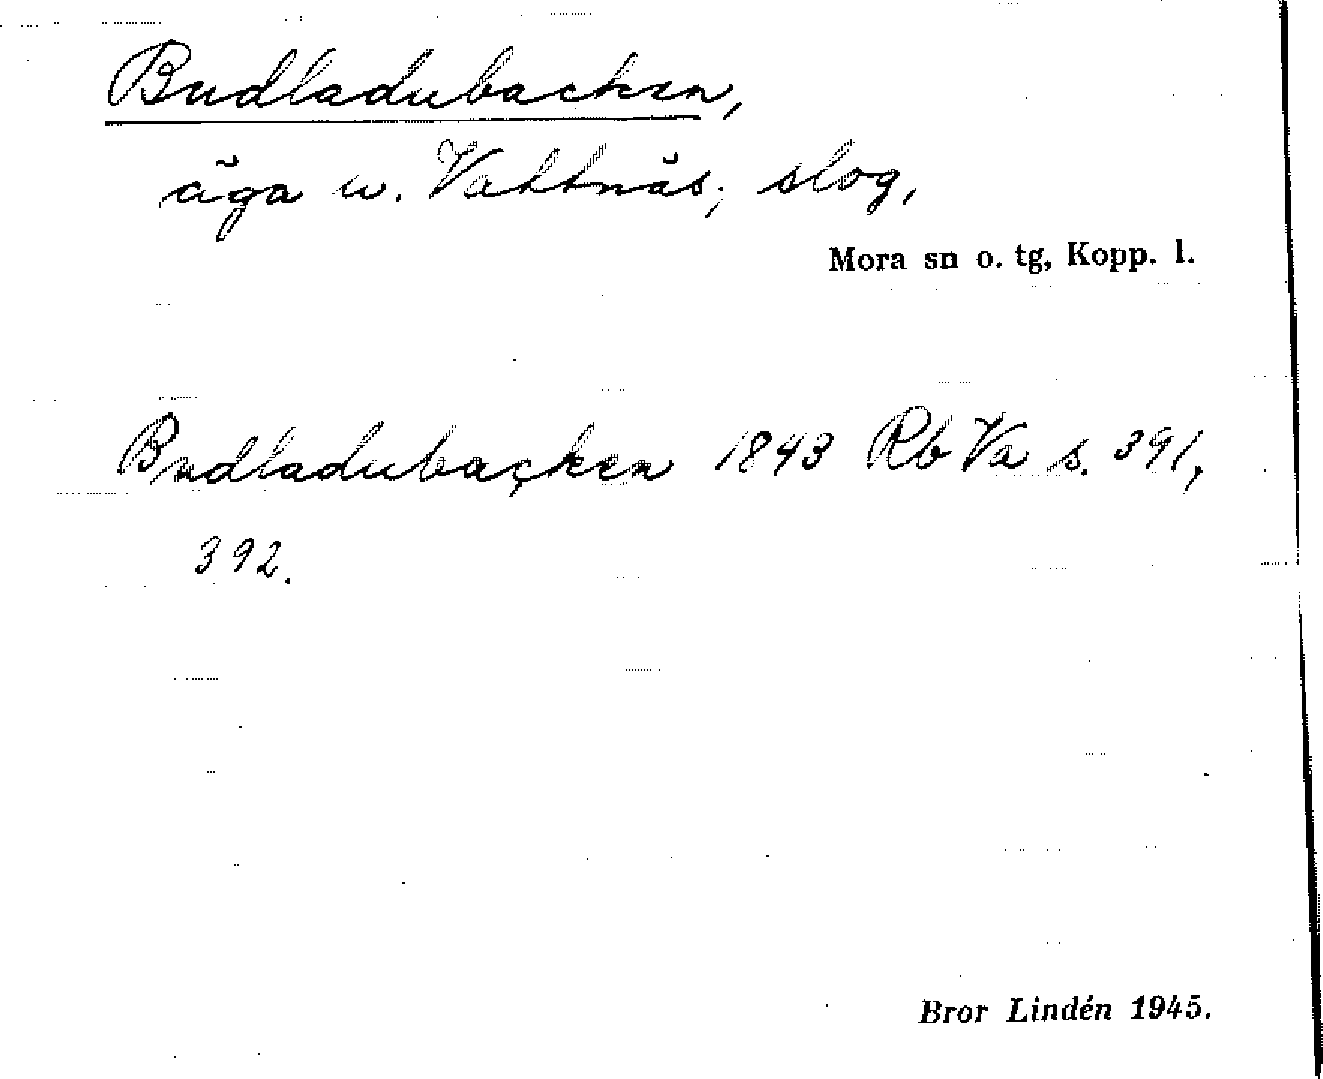 Budladubacken,
äga u. Vattnäs; slog,
Mora sn o. tg, Kopp. l.
Budladubacken 1843 Rb Va s. 391,
392.
Bror Lindén 1945.